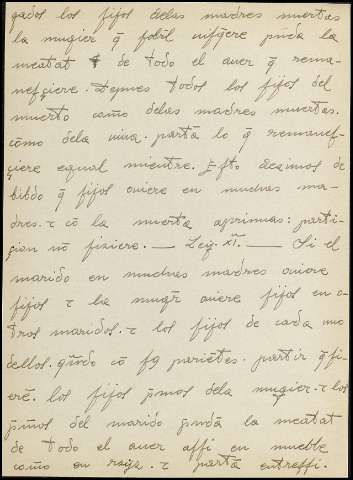 gados los fijos delas madres muertas
la mugier q̃ fobił uisq̃ere p̃nda la
meatat de todo el auer q̃ rema-
nesçiere. Depues todos los fijos del
muerto camo delas madres muertas.
como dela uiua. parta lo q̃ remanes-
çiere egual mientre. Esto dezimos de
bibdo q̃ fijos ouiere en muchas ma-
dres. τ cõ la muerta aprimas: parti-
çion nõ fiziere. — Ley. XI. — Si el
marido en muchas madres ouiere
fijos τ la mugr̃ ouiere fijos en o-
tros maridos. τ los fijos de cada uno
dellos. q̃ndo cõ sg parietes. partir q̃si-
erẽ. los fijos p̃m̃os dela mugier. τ los
p̃m̃os del marido p̃ndã la meatat
de todo el auer assi en mueble
camo en rayz. τ partã entressi.